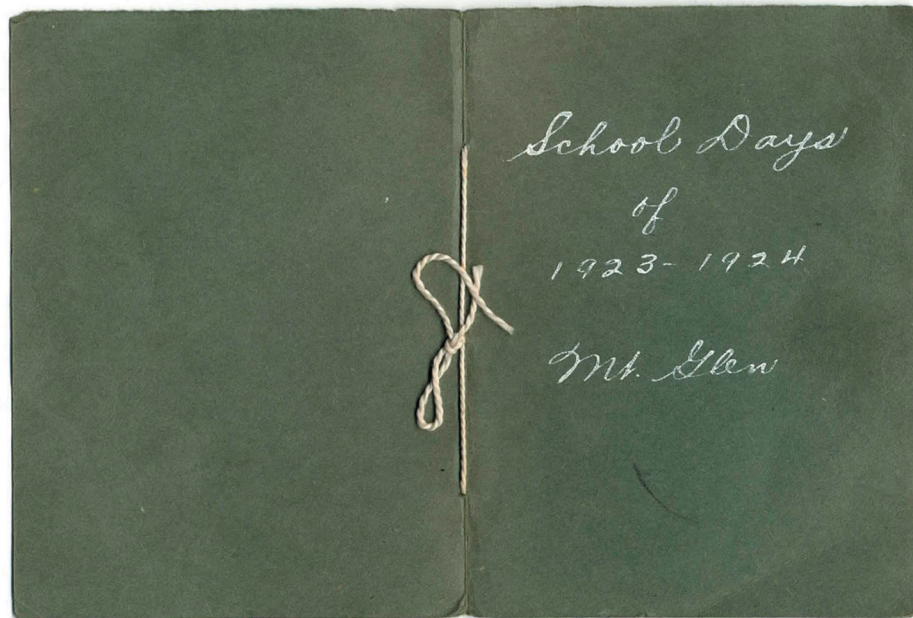 School Days
of
1923-1924
Mt. Glen